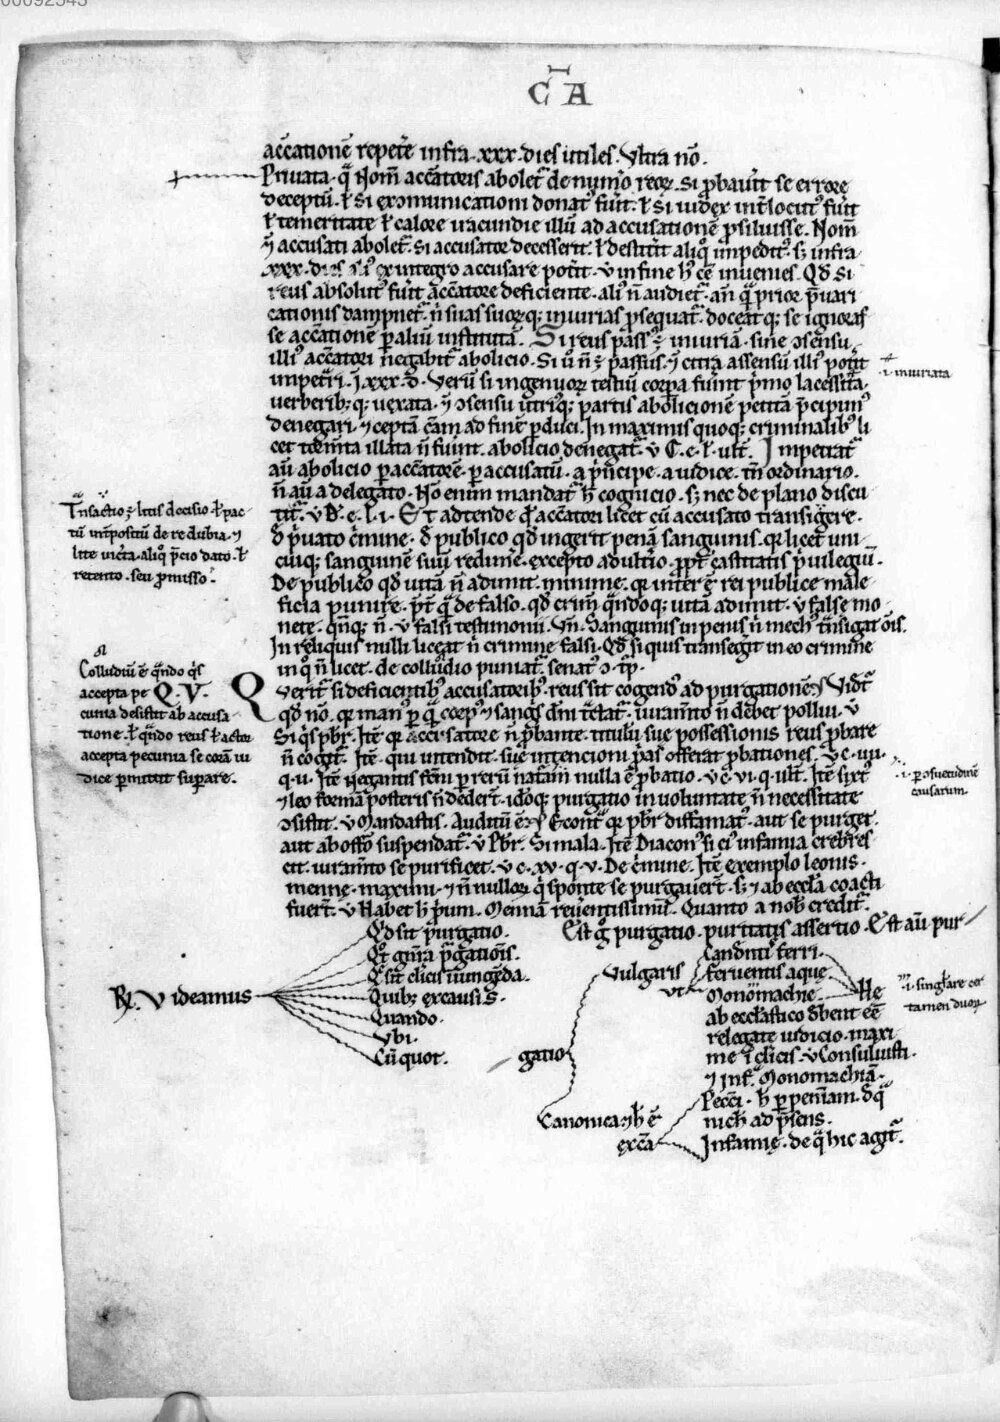 00092543
C A
accatione᷒ repete᷒ infra .xxx. dies utiles. Vltra no᷒.
Priuata. q᷒ Nom᷒ accatoris abolet᷒ de num᷒o reor᷒. si p᷒bau᷒it se errore
deceptu᷒. ł si exco᷒municationi donat᷒ fu᷒it. ł si iudex int᷒locut᷒ fu᷒it
ł temeritate ł calore iracundie illu᷒ ad accusatione᷒ p᷒siluisse. Nom᷒
⁊ accusati abolet᷒. si accusator decesserit. ł destit᷒it aliq᷒ impedit᷒. s᷒ infra
.xxx. dies ex integro accusare pot᷒it. v᷒ in fine h᷒ ce᷒ inuenies. Qd᷒ si
reus absolut᷒ fu᷒it acc᷒atore deficiente. ali᷒ n᷒ audiet᷒. an᷒ q᷒ prior p᷒uari
cationis dampnet᷒. n᷒ suas suorq᷒; iniurias p᷒sequat᷒. doceat q᷒; se ignoras
se acc᷒atione᷒ p᷒ aliu᷒ instituta᷒. Si reus pass᷒ ÷ iniuria᷒. sine ɔsensu
illi᷒ acc᷒atori negabit᷒ abolicio. Si u᷒ n᷒ ÷ passus. ⁊ citra assensu᷒ illi᷒ pot᷒it
impet᷒ri. i᷒ .xxx. d. Veru᷒ si ingenuor᷒ testiu᷒ corp᷒a fu᷒int p᷒mo lacessita.
uerberib᷒; q᷒; uexata. ⁊ ɔsensu ut᷒iq᷒; partis abolicione᷒ petita᷒ p᷒cipim᷒
denegari. ⁊ cepta᷒ ca᷒m ad fine᷒ p᷒duci. In maximis quoq᷒; criminalib᷒ li
cet torm᷒ta illata n᷒ fu᷒int. abolicio denegat᷒. v᷒ C. e. l. ult᷒. Impetrat᷒
au᷒ abolicio p᷒ acc᷒atore᷒. p᷒ accusatu᷒. a p᷒ncipe. a iudice. tm᷒ ordinario.
n᷒ au᷒ a delegato. No᷒ enim mandat᷒ h᷒ cognicio. s᷒; nec de plano discu
tit᷒. v᷒ D. e. l. i. Et adtende q᷒ acc᷒atori licet cu᷒ accusato transigere.
d᷒ p᷒uato c᷒mine. d᷒ publico qd᷒ ingerit pena᷒ sanguinis. q᷒r licet uni
cuiq᷒; sanguine᷒ suu᷒ redim᷒e. excepto adult᷒io. p᷒pt᷒ castitatis p᷒uilegiu᷒.
De publico qd᷒ uita᷒ n᷒ adimit. minime. q᷒r int᷒er÷ rei publice male
ficia punire. p᷒t᷒ q᷒ de falso. qd᷒ crim᷒ q᷒ndoq᷒; uita᷒ adimit. v᷒ false mo
nete. qnq᷒; n᷒. v᷒ falsi testimonii. Vn᷒. Sanguinis in penis n᷒ mech᷒ t᷒nsigat o᷒is.
In reliquis nulli liceat n᷒ crimine falsi. Qd᷒ si quis transegit in eo crimine
in q᷒ n᷒ licet. de colludio puniat᷒. senat᷒ ɔ. tp᷒.
Q. V. Q uerit᷒ si deficientib᷒ accusatorib᷒. reus sit cogend᷒ ad purgatione᷒. Vid᷒t᷒
qd᷒ no᷒. q᷒r man᷒ p᷒ q᷒ ccorp᷒ ⁊ sangs᷒ dni᷒ t᷒ctat᷒. iuram᷒to n᷒ debet pollui. v᷒
Si q᷒s p᷒br. It᷒e q᷒r accusatore n᷒ p᷒bante. titulu᷒ sue possessionis reus p᷒bare
n᷒ cogit᷒. It᷒e. qui intendit. sue᷒ intencioni p᷒as offerat p᷒bationes.
q. u. It᷒e negantis fcm᷒ p᷒ reru᷒ natam᷒ nulla e᷒ p᷒batio. v᷒ c. vi. q. ult᷒. It᷒e sixt᷒
⁊ leo forma᷒ posteris n᷒ deder᷒t. ido᷒q᷒; purgatio in uoluntate n᷒ necessitate
ɔsistit. v᷒ Mandastis. Auditu᷒ e᷒. Econt᷒ q᷒r p᷒br diffamat᷒. aut se purget.
aut ab off᷒o suspendat᷒. v᷒ P᷒br. Si mala. It᷒e Diacon᷒ si ei᷒ infamia crebres
cit. iuram᷒to se purificet. v᷒ c. xv. q. v. De c᷒mine. It᷒e exemplo leonis.
menne. maximi. ⁊ n᷒nullor᷒ q᷒ sponte se purgauer᷒t. s᷒; ⁊ ab eccl᷒a coacti
fuer᷒t. v᷒ Habet h᷒ p᷒um. Menna᷒ reu᷒entissimu᷒. Quanto a nob᷒ credit᷒.
Est g᷒ purgatio. puritatis assertio. Est au᷒ pur
R᷒. Videamus
Qd᷒ sit purgatio.
Qt᷒ gn᷒ra p᷒gatio᷒is.
Q᷒ sit clicis᷒ iniunge᷒da.
Quib᷒; ex causis.
Quando.
Vbi.
Cu᷒ quot.
gatio
Vulgaris
ut
Candenti᷒ ferri.
feruentis aque.
Monomachie.
He
ab eccl᷒astico d᷒bent ee᷒
relegate iudicio. maxi
me i᷒ cl᷒icis. v᷒ Consuluisti.
⁊ inf᷒. Monomachia᷒.
Canonica. ⁊ h᷒ e᷒
exc᷒a
Pecc᷒i. h᷒ p᷒ penit᷒iam. d᷒ q᷒
nich᷒ ad p᷒sens.
Infamie. de q᷒ hic agit᷒.
.i. iniuriata
T᷒nsactio ÷ litis decisio. ł pac
tu᷒ int᷒positu᷒ de re dubia. ⁊
lite inc᷒ta. aliq᷒ p᷒cio dato. ł
retento. seu p᷒misso.
Colludiu᷒ e᷒ q᷒ndo q᷒s
accepta pe
cunia desistit ab accusa
tione. ł q᷒ndo reus ł actor
accepta pecunia se cora᷒ iu
dice p᷒mittit sup᷒are.
.i. p᷒ ɔsuetudine᷒
causarum
.i. sing᷒lare cer
tamen duor᷒